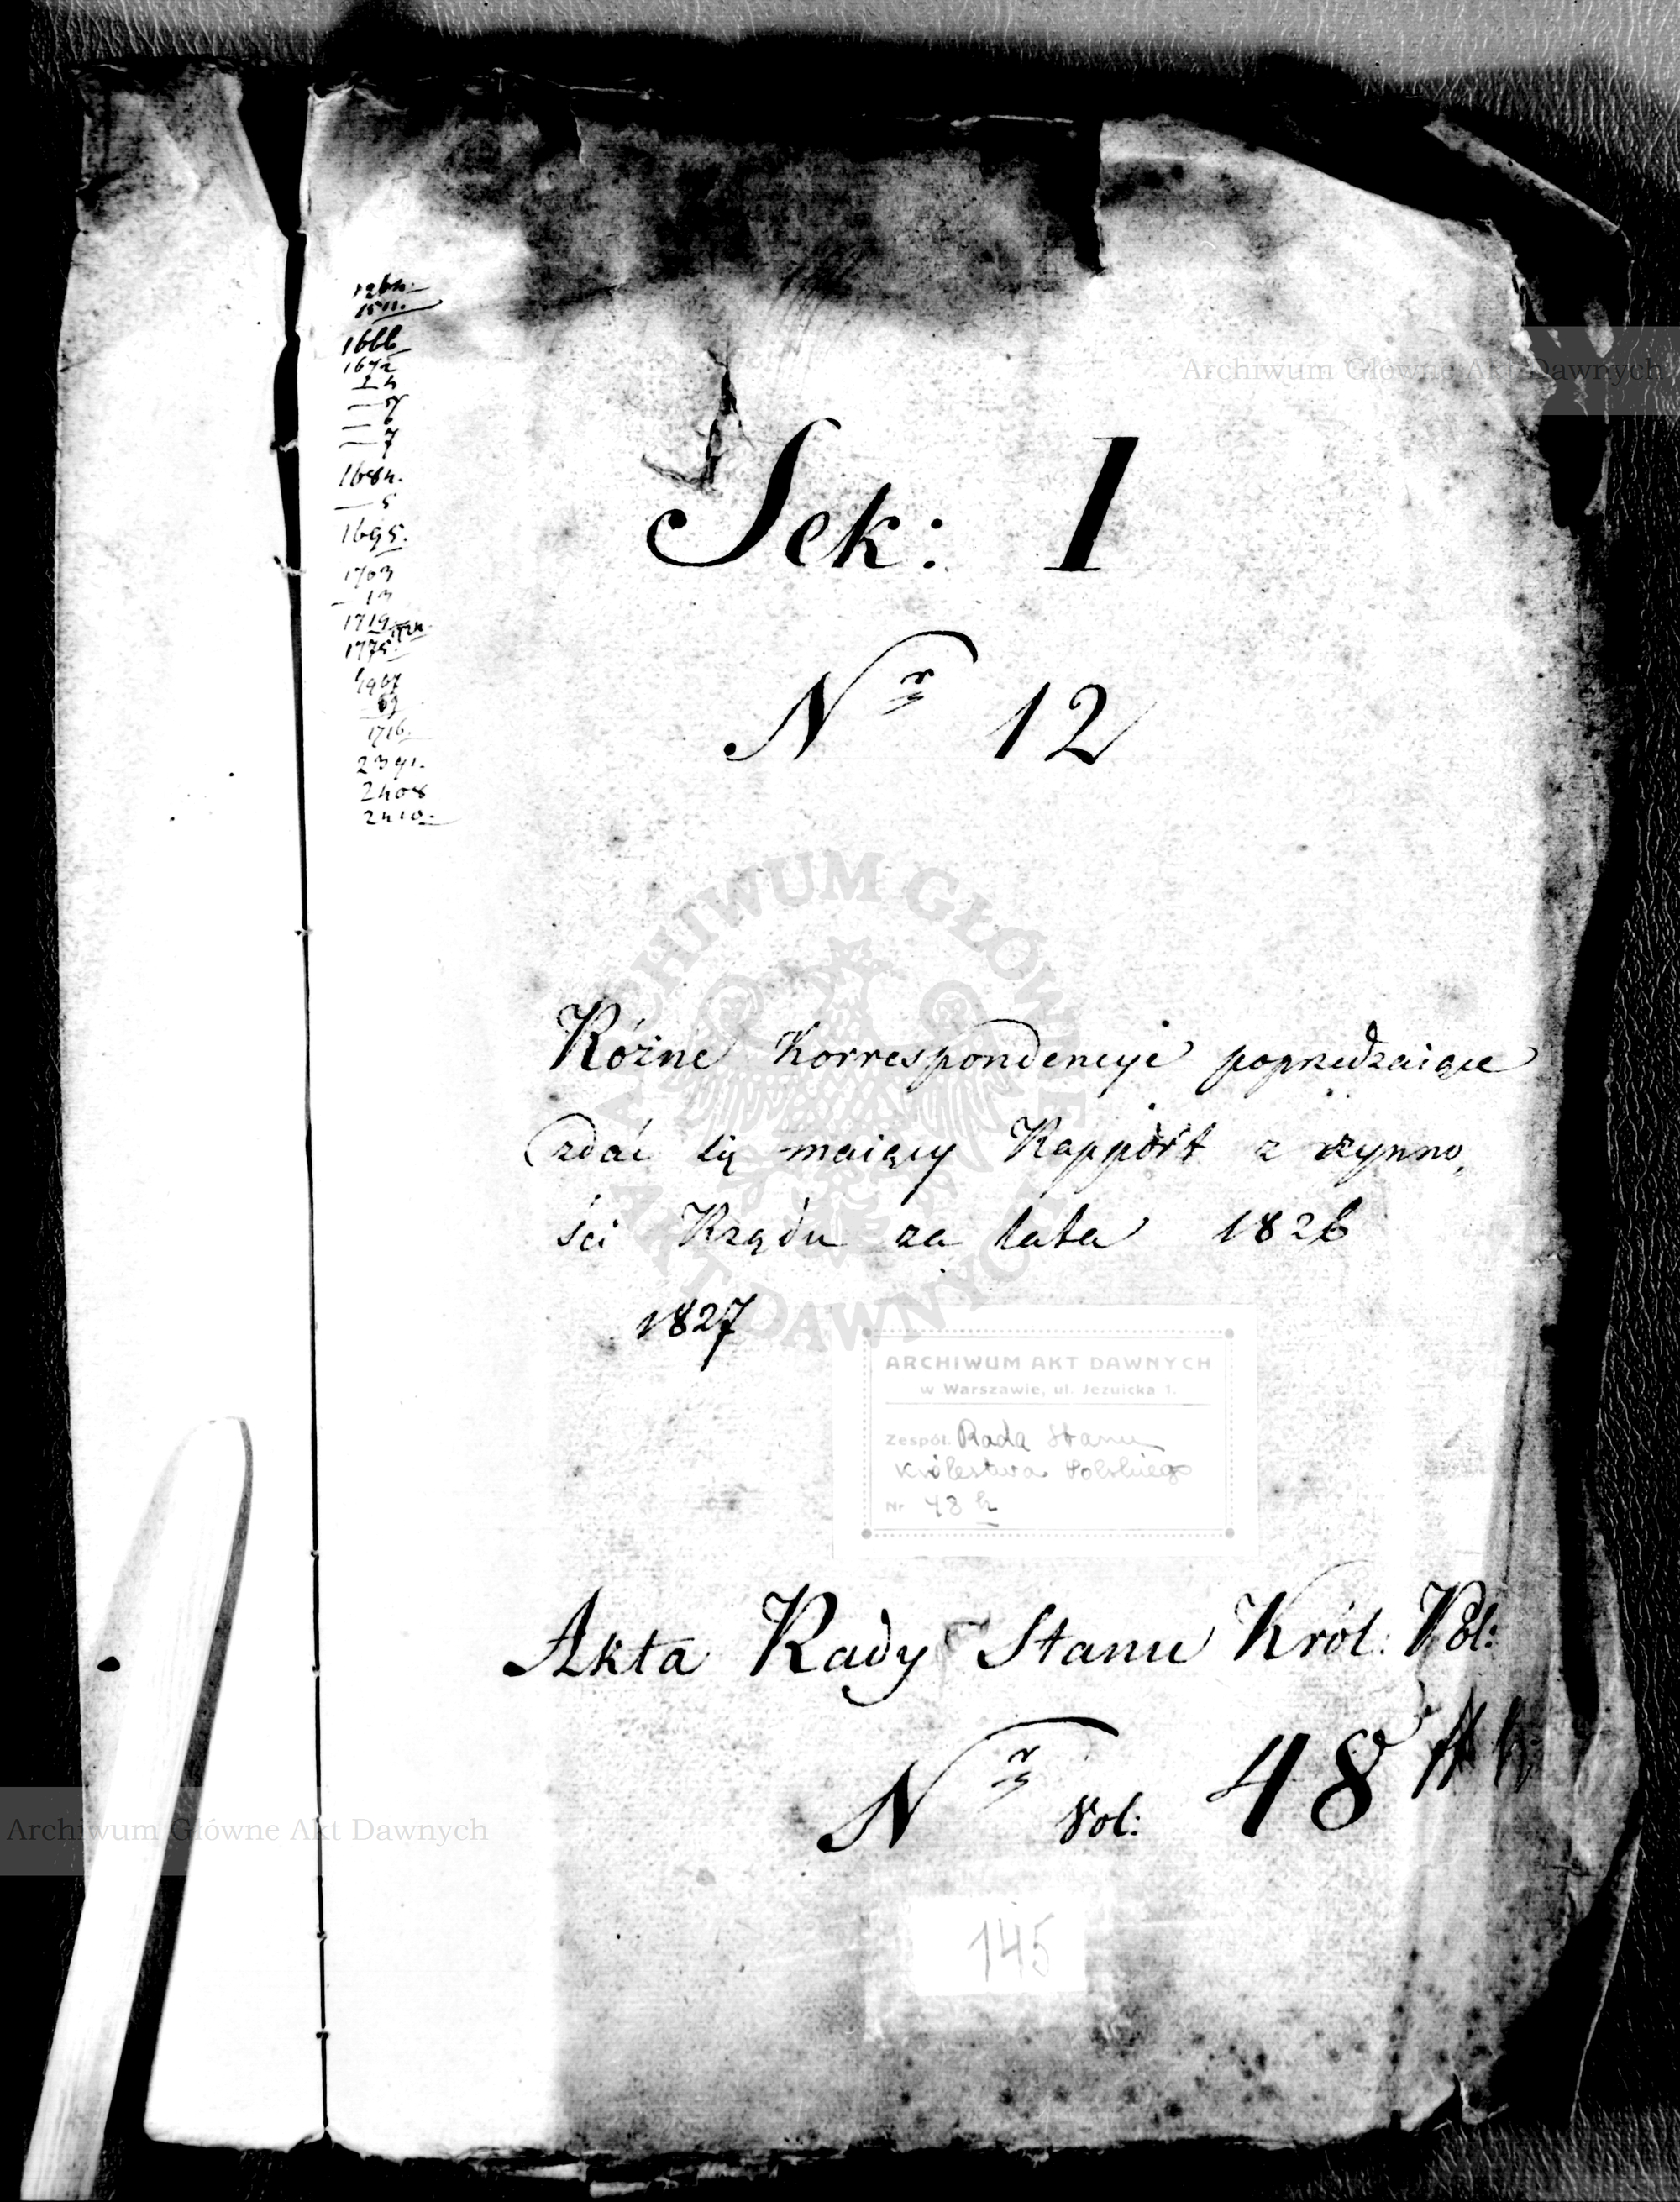 1264.
1511.
1666
1672
— 4
— 6
— 7
1684.
— 5
1695.
1703
— 13
1719
1775.
1716.
2391.
2408
2410.
Sek: I
Nr 12
Różne Korrespondencye poprzedzaiące
zdać się maiący Rapport z czynno,
ści Rządu za lata 1826
1827
ARCHIWUM AKT DAWNYCH
w Warszawie, ul. Jezuicka 1.
Zespół. Rada Stanu
Królestwa Polskiego
Nr 48 h
Akta Rady Stanu Król: Pol:
Nr Vol: 48 h
145
Archiwum Główne Akt Dawnych
Archiwum Główne Akt Dawnych
ARCHIWUM GŁÓWNE AKT DAWNYCH